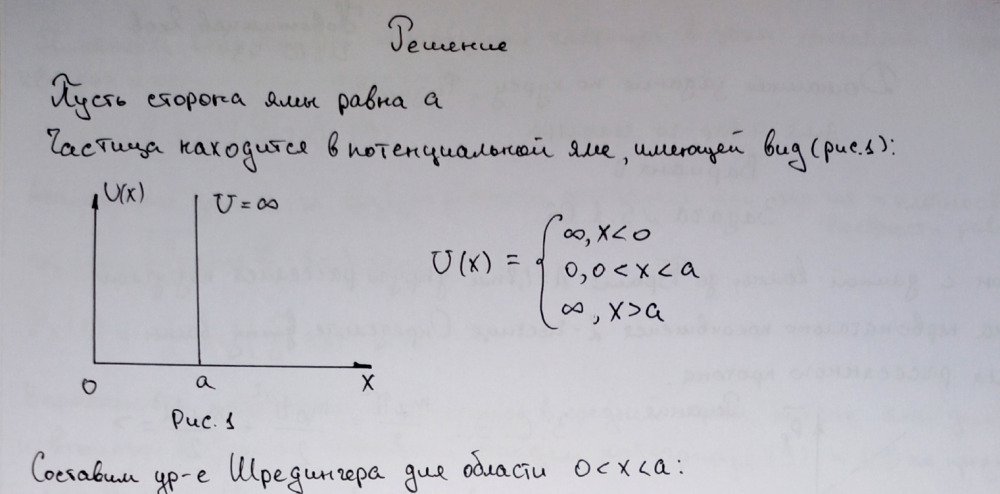 Решение
Пусть сторона ямы равна а
Частица находится в потенциальной яме, имеющей вид (рис.1):
U(x)
U=∞
U(x) = { ∞, x<0
0, 0<x<a
∞, x>a
0 a x
Рис. 1
Составим ур-е Шредингера для области 0<x<a: